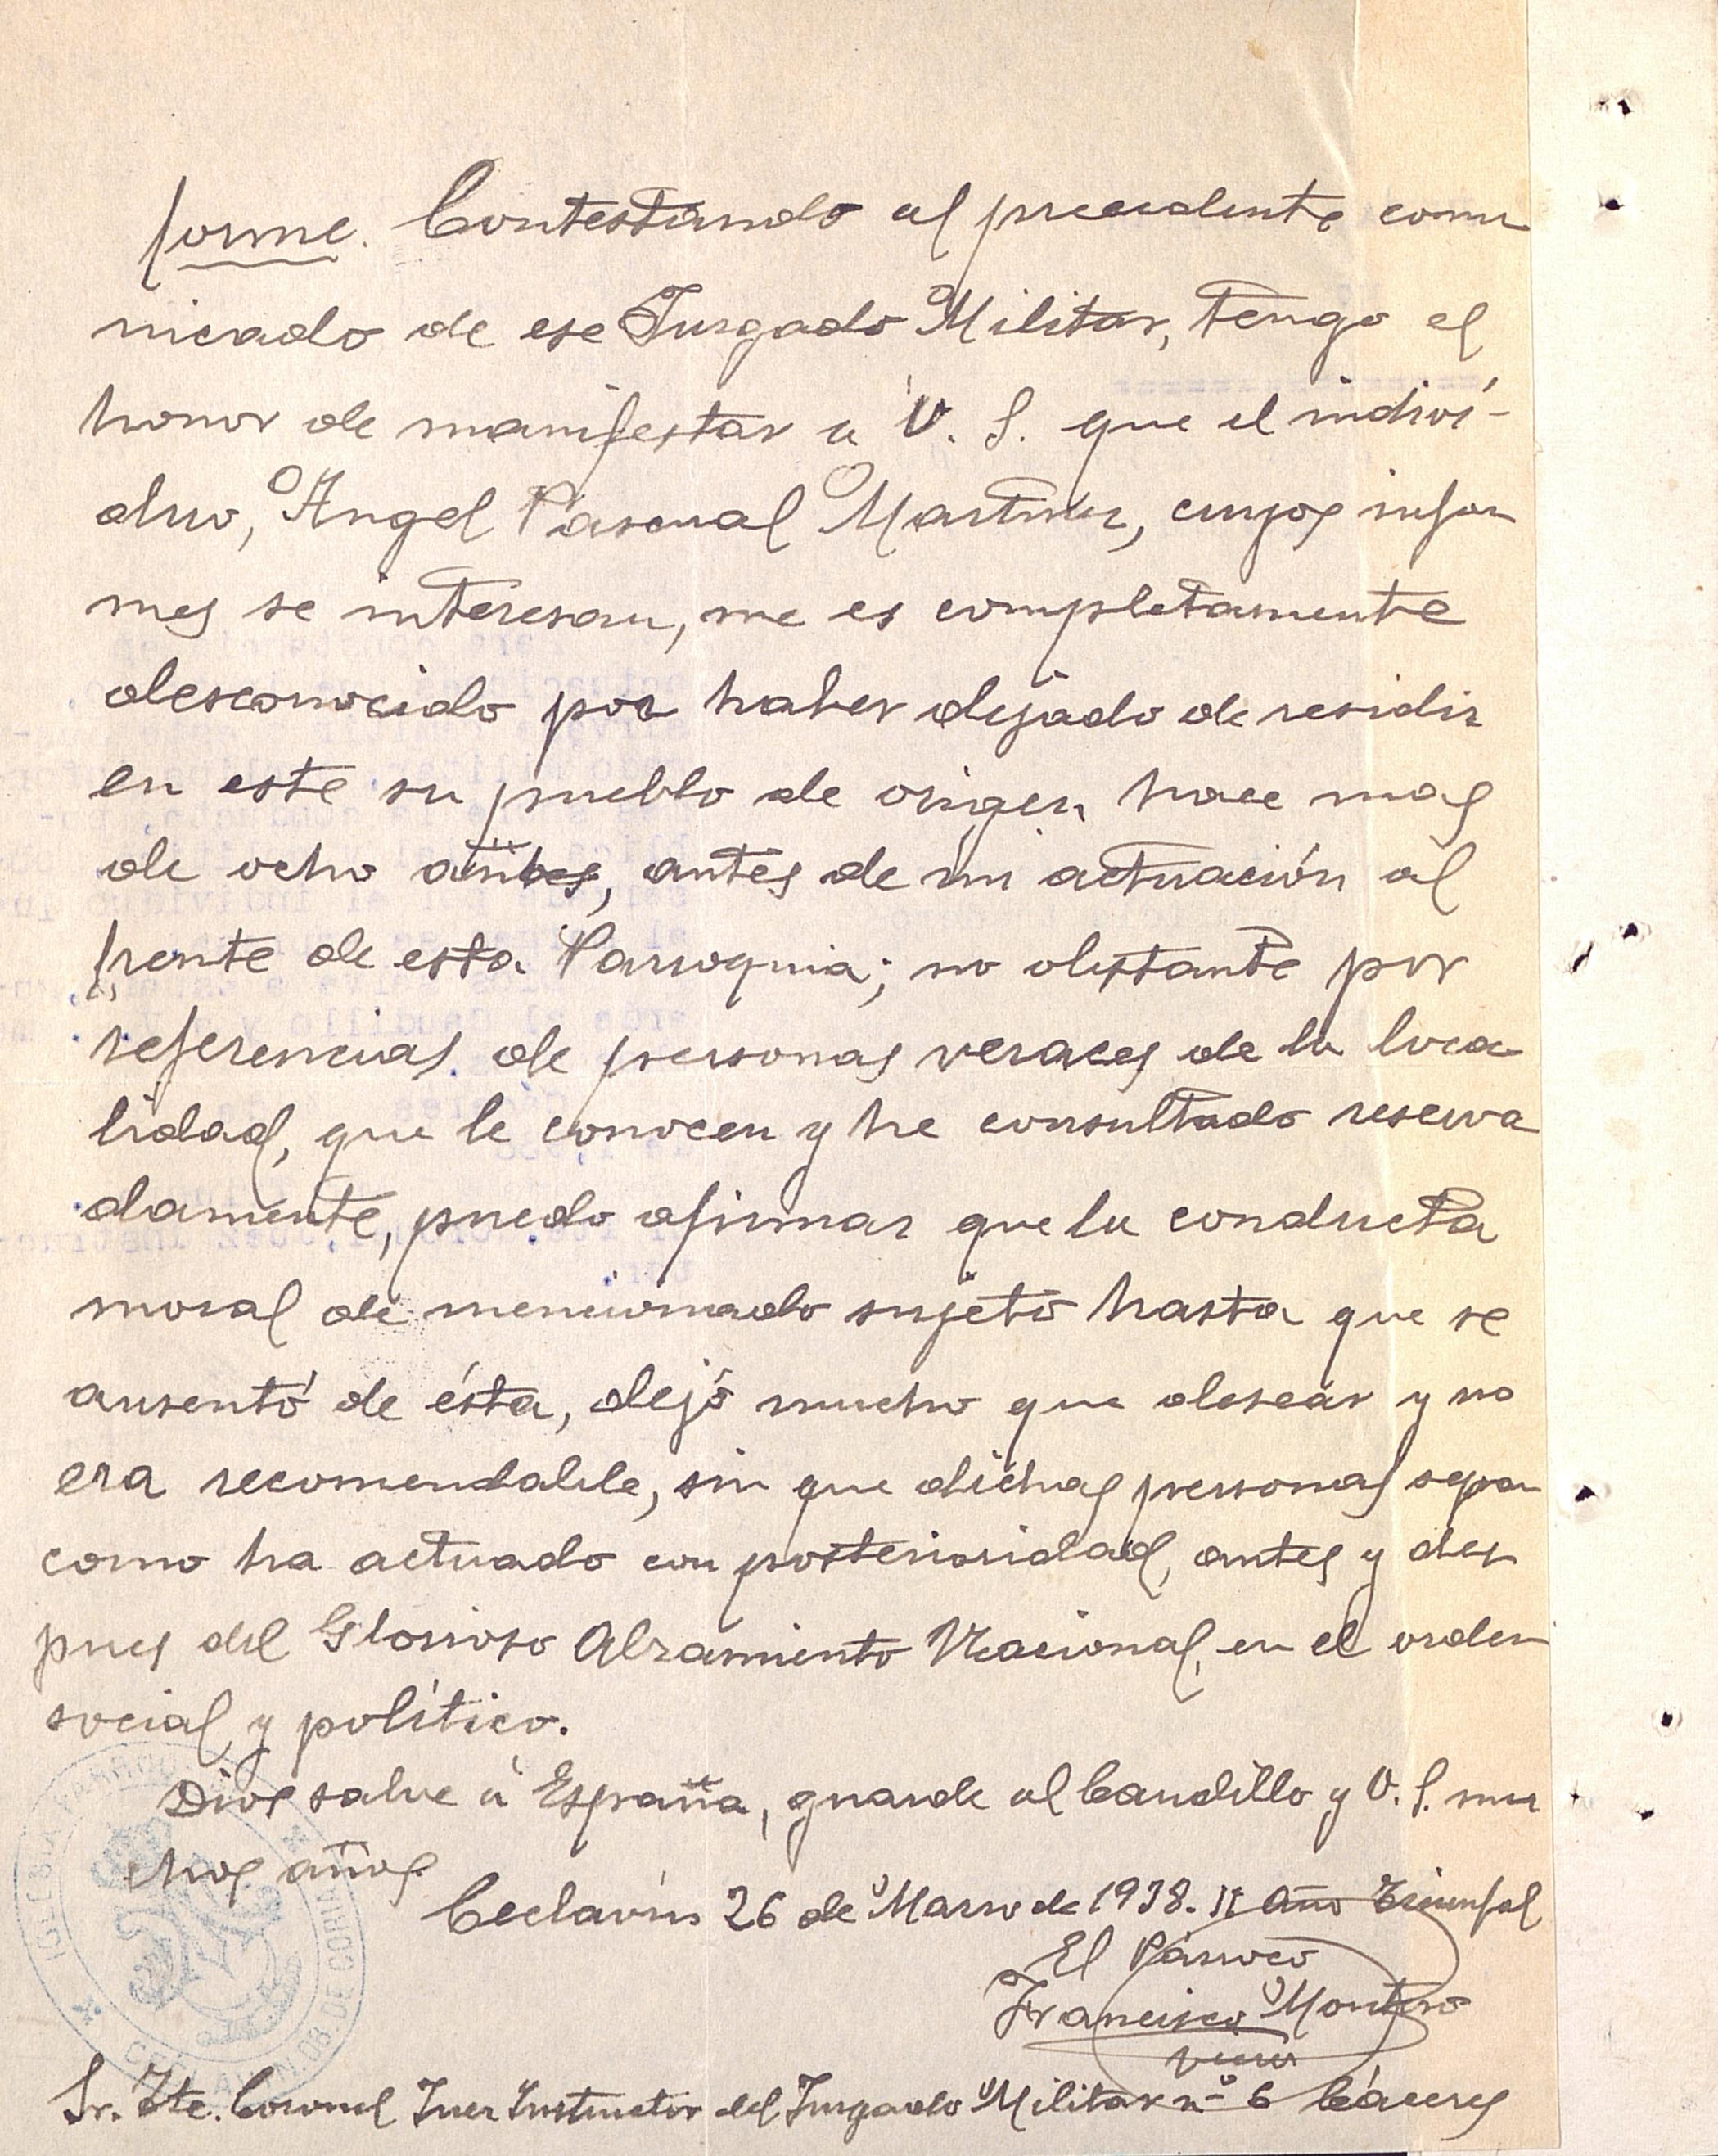 forme. Contestando al precedente comu
nicado de ese Juzgado Militar, tengo el
honor de manifestar a V. S. que el indiví-
duo, Angel Pascual Martínez, cuyos infor
mes se interesan, me es completamente
desconocido por haber dejado de residir
en este su pueblo de origen hace mas
de ocho años, antes de mi actuación al
frente de esta Parroquia; no obstante por
referencias de personas veraces de la loca
lidad, que le conocen y he consultado reserva
damente, puedo afirmar que la conducta
moral de mencionado sujeto hasta que se
ausentó de ésta, dejó mucho que desear y no
era recomendable, sin que dichas personas sepan
como ha actuado con posterioridad, antes y des
pues del Glorioso Alzamiento Nacional, en el orden
social y político.
Dios salve á España, guarde al Caudillo y V. S. mu
chos años
Ceclavín 26 de Marzo de 1938. II Año Triunfal
El Párroco
Francisco Montero
Sr. Tte. Coronel Juez Instructor del Juzgado Militar nº 6 Cáceres
IGLESIA PARROQUIAL
CECLAVIN. OB. DE CORIA